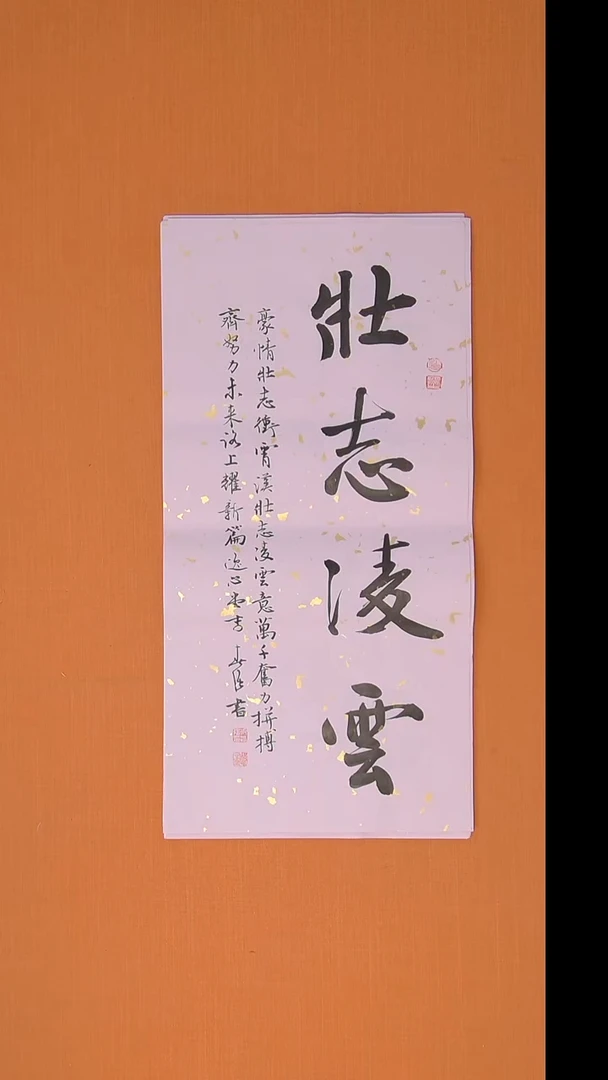 壯志凌雲
豪情壯志衝霄漢壯志凌雲意萬千奮力拼搏
齊努力未来路上耀新篇逸心堂書